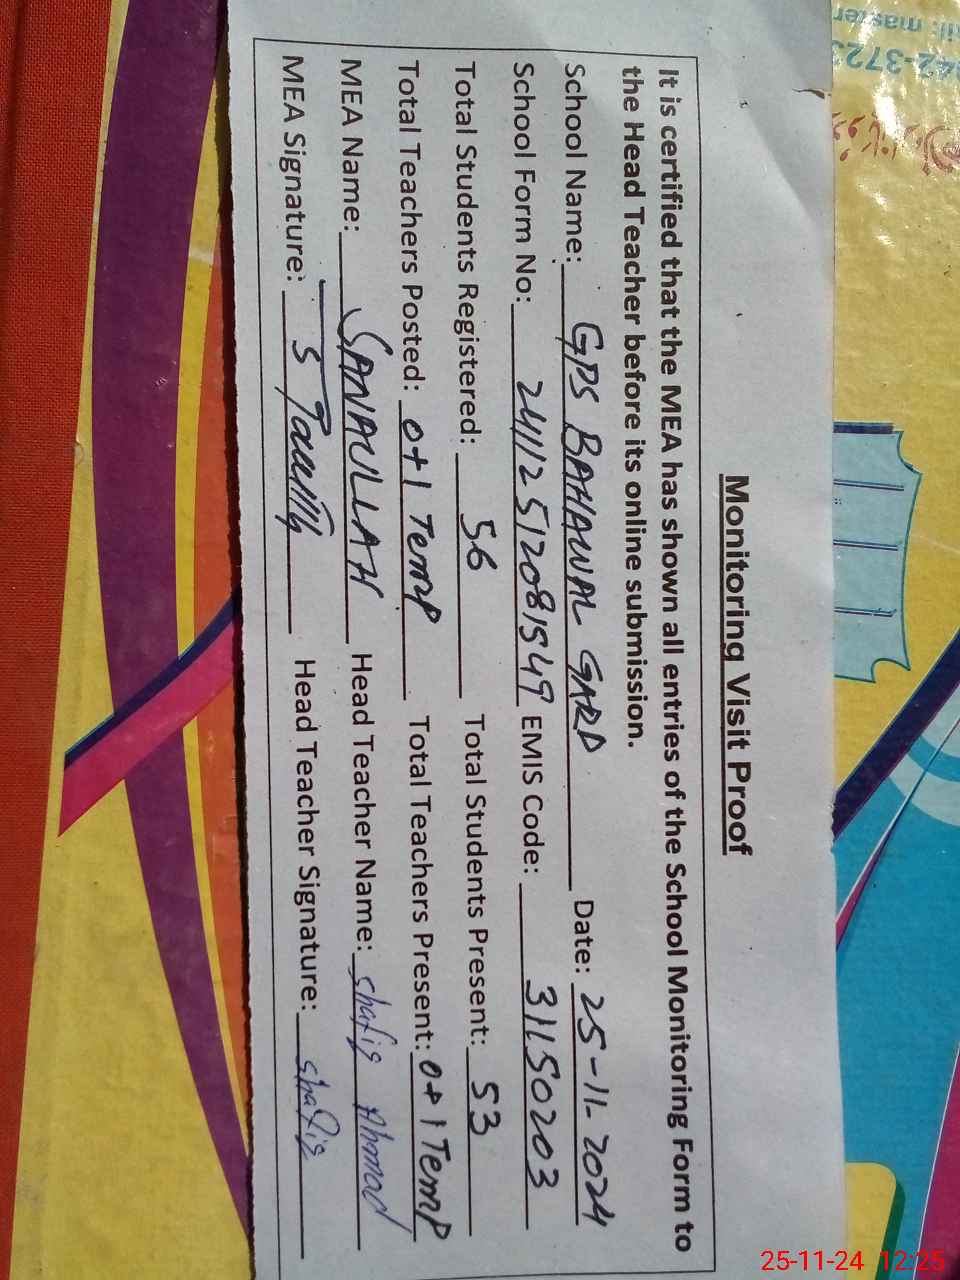 Monitoring Visit Proof
It is certified that the MEA has shown all entries of the School Monitoring Form to
the Head Teacher before its online submission.
School Name: GPS BAHAWAL GARD Date: 25-11-2024
School Form No: 24112512081549 EMIS Code: 31150203
Total Students Registered: 56 Total Students Present: 53
Total Teachers Posted: 0+1 Temp Total Teachers Present: 0+1 Temp
MEA Name: SANAULLAH Head Teacher Name: Shafiq Ahmad
MEA Signature: Head Teacher Signature: Shafiq
042-372
il: master
25-11-24 12:25